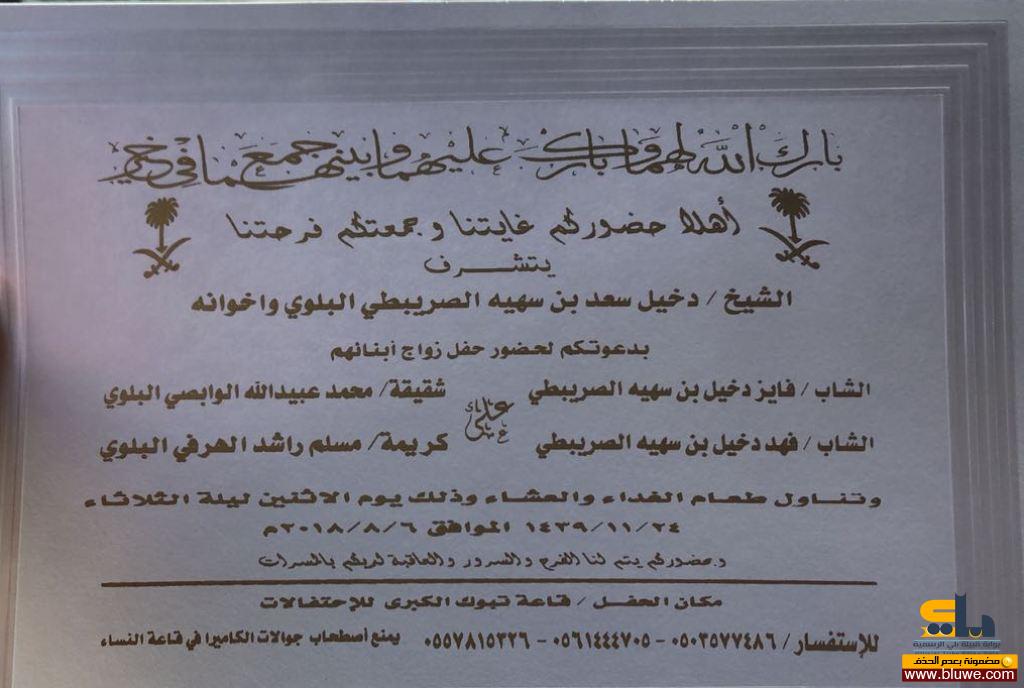 بارك الله لهما وبارك عليهما وجمع بينهما في خير
أهلا حضوركم غايتنا وجمعتكم فرحتنا
يتشرف
الشيخ / دخيل سعد بن سهيه الصريبطي البلوي واخوانه
بدعوتكم لحضور حفل زواج أبنائهم
الشاب / فايز دخيل بن سهيه الصريبطي على شقيقة/ محمد عبيدالله الوابصي البلوي
الشاب / فهد دخيل بن سهيه الصريبطي كريمة/ مسلم راشد الهرفي البلوي
وتناول طعام الغداء والعشاء وذلك يوم الاثنين ليلة الثلاثاء
١٤٣٩/١١/٢٤ الموافق ٢٠١٨/٨/٦م
وحضوركم يتم لنا الفرح والسرور والعاقبة لديكم بالمسرات
مكان الحفل / قاعة تبوك الكبرى للإحتفالات
للإستفسار / ٠٥٠٣٥٧٧٤٨٦ - ٠٥٦١٤٤٤٧٠٥ - ٠٥٥٧٨١٥٣٢٦ يمنع أصطحاب جوالات الكاميرا في قاعة النساء
بلي
بوابة قبيلة بلي الرسمية
مضمونة بعدم الحذف
www.bluwe.com